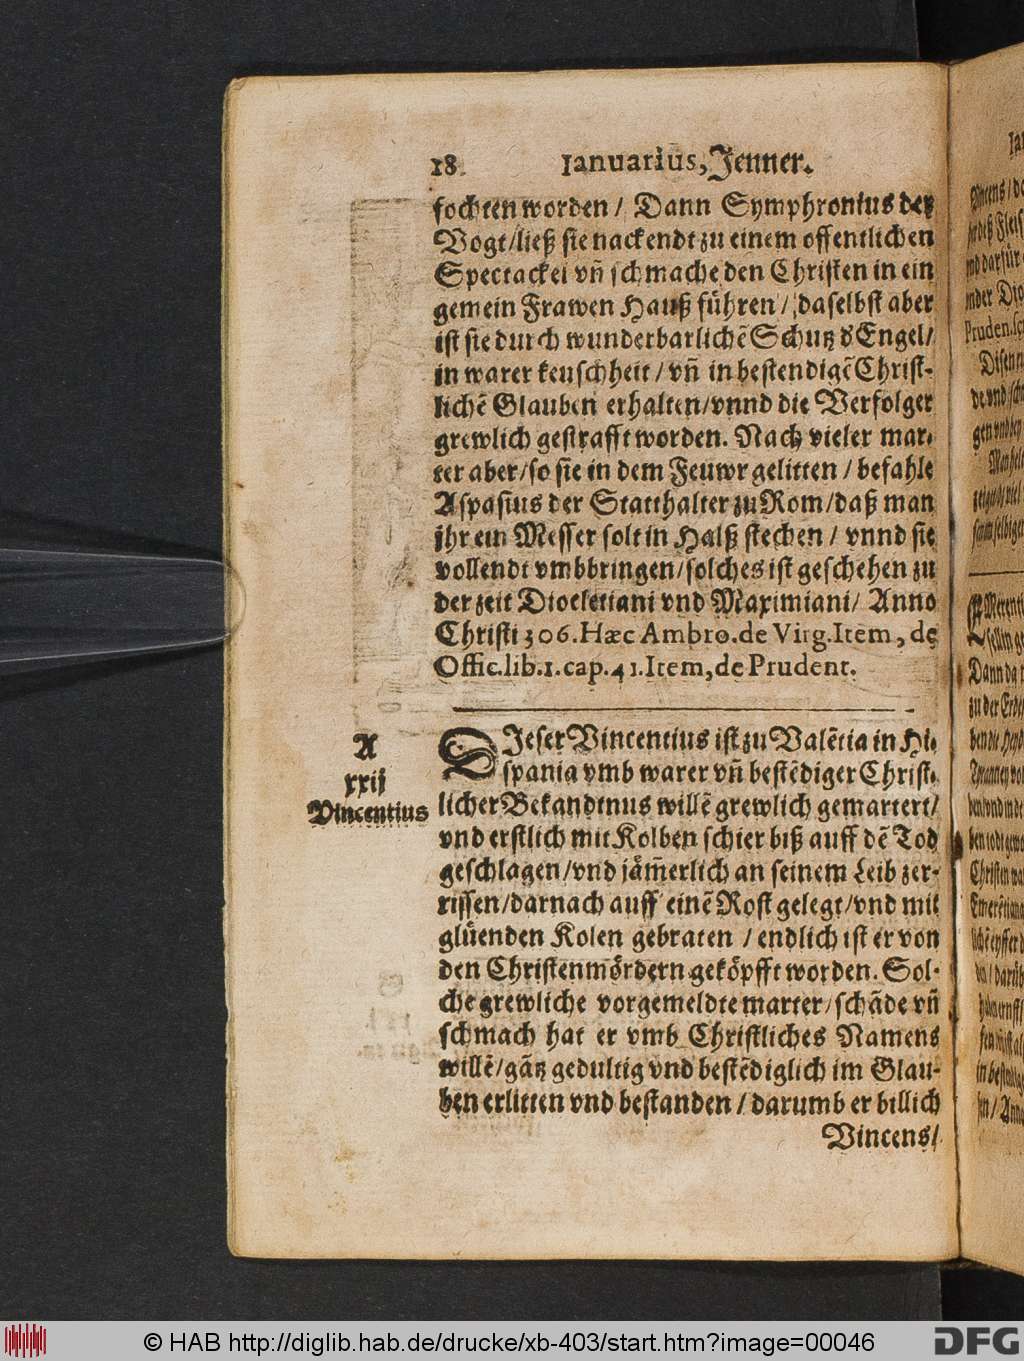 18 Ianuarius, Jenner.
fochten worden / Dann Symphronius der
Vogt / ließ sie nackendt zu einem offentlichen
Spectackel vñ schmache den Christen in ein
gemein Frawen Hauß führen / daselbst aber
ist sie durch wunderbarlichẽ Schutz d' Engel /
in warer keuschheit / vñ in bestendigẽ Christ-
lichẽ Glauben erhalten / vnnd die Verfolger
grewlich gestrafft worden. Nach vieler mar-
ter aber / so sie in dem Feuwr gelitten / befahle
Aspasius der Statthalter zu Rom / daß man
jhr ein Messer solt in Halß stechen / vnnd sie
vollendt vmbbringen / solches ist geschehen zu
der zeit Diocletiani vnd Maximiani / Anno
Christi 306. Hæc Ambro. de Virg. Item, de
Offic. lib. 1. cap. 41. Item, de Prudent.
A
xxij
Vincentius
DIeser Vincentius ist zu Valẽtia in Hi-
spania vmb warer vñ bestẽdiger Christ-
licher Bekandtnus willẽ grewlich gemartert /
vnd erstlich mit Kolben schier biß auff dẽ Tod
geschlagen / vnd jäm̃erlich an seinem Leib zer-
rissen / darnach auff einẽ Rost gelegt / vnd mit
glüenden Kolen gebraten / endlich ist er von
den Christenmördern geköpfft worden. Sol-
che grewliche vorgemeldte marter / schãde vñ
schmach hat er vmb Christliches Namens
willẽ / gãtz gedultig vnd bestẽdiglich im Glau-
ben erlitten vnd bestanden / darumb er billich
Vincens /
© HAB http://diglib.hab.de/drucke/xb-403/start.htm?image=00046
DFG